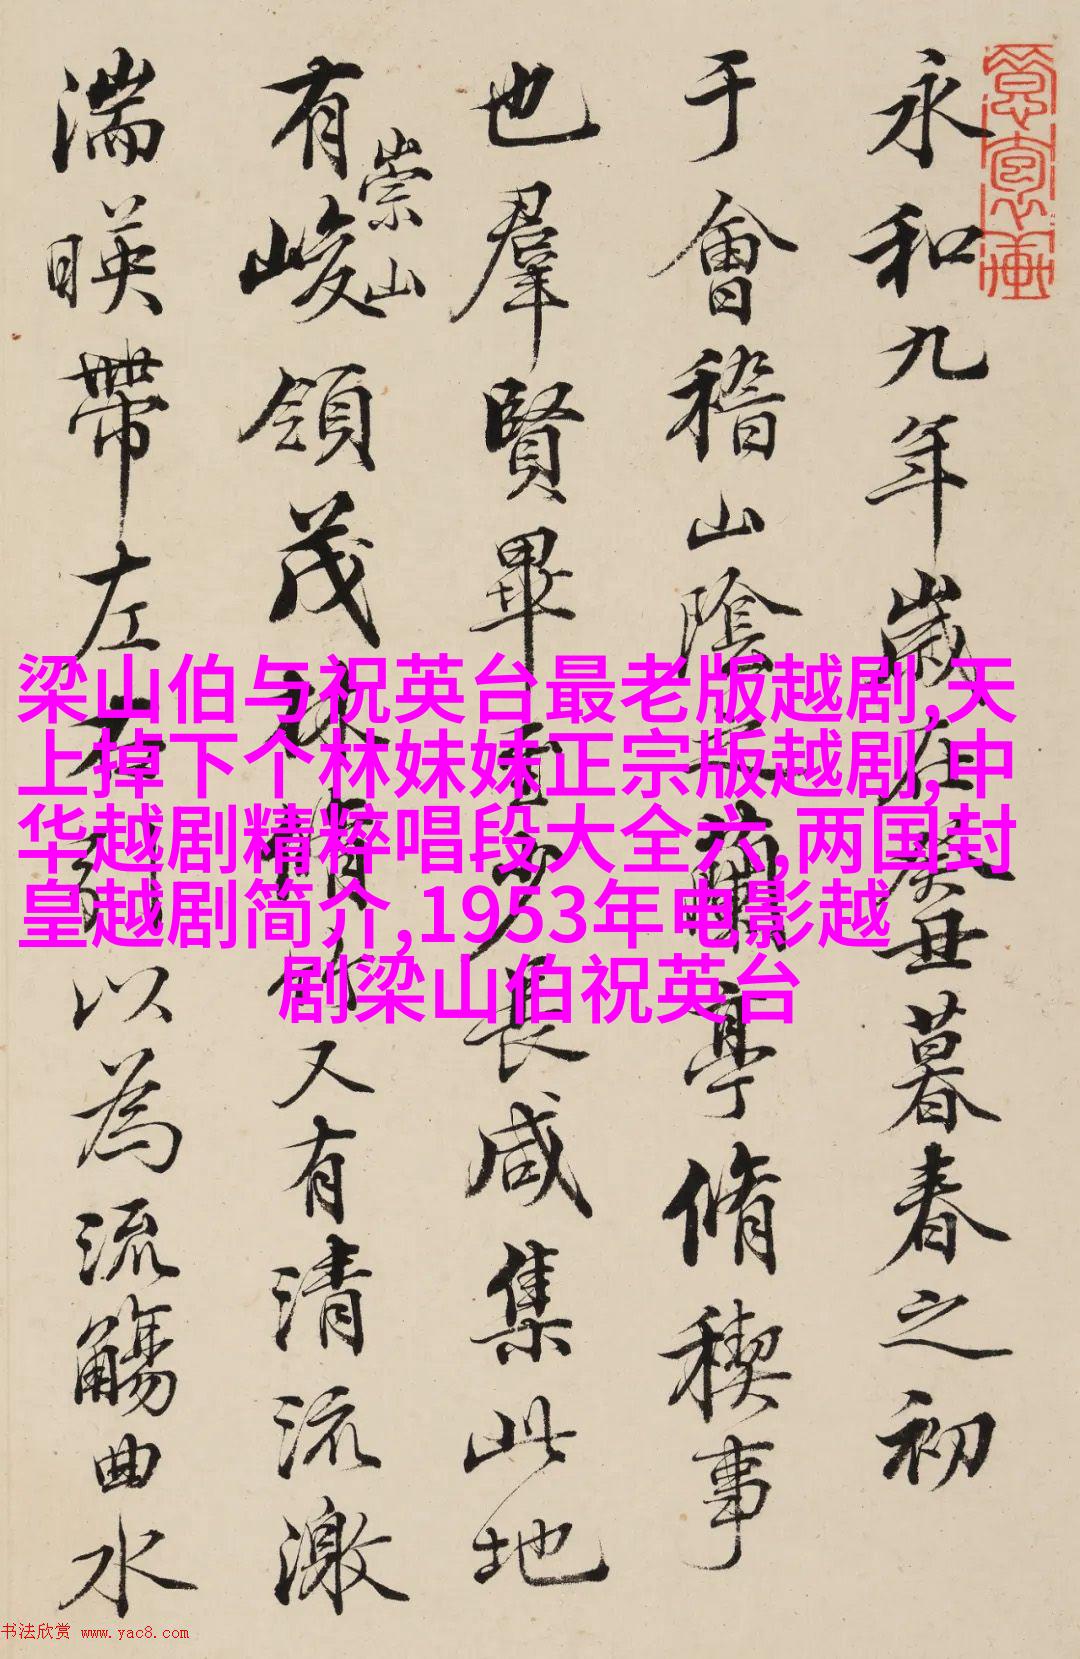 永和九年歲在癸丑暮春之初
于會稽山陰之蘭亭脩稧事
也羣賢畢至少長咸集此地
有崇山峻領茂林脩竹又有清流激
湍暎帶左右引以為流觴曲水
梁山伯与祝英台最老版越剧,天
上掉下个林妹妹正宗版越剧,中
华越剧精粹唱段大全六,两国封
皇越剧简介,1953年电影越
剧梁山伯祝英台
书法欣赏 www.yac8.com